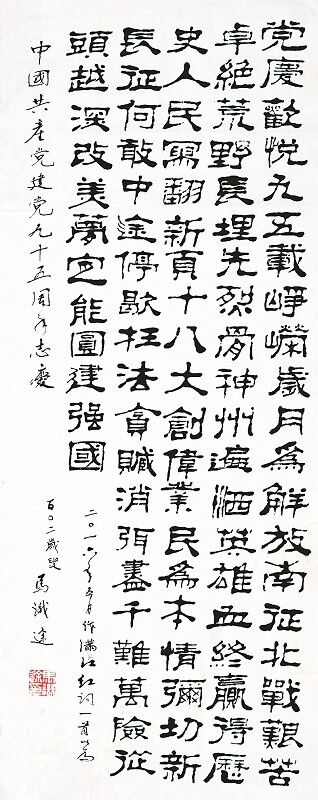 党慶歡悦九五載崢嶸歲月為解放南征北戰艱苦
卓絶荒野長埋先烈骨神州遍洒英雄血終贏得歷
史人民寫翻新頁十八大創偉業民為本情彌切新
長征何敢中途停歇枉法貪贓消弭盡千難萬險從
頭越深改美夢定能圓建强國
二〇一六年五月作滿江红詞一首為
中國共產党建党九十五周年志慶
百〇二歲叟 馬識途